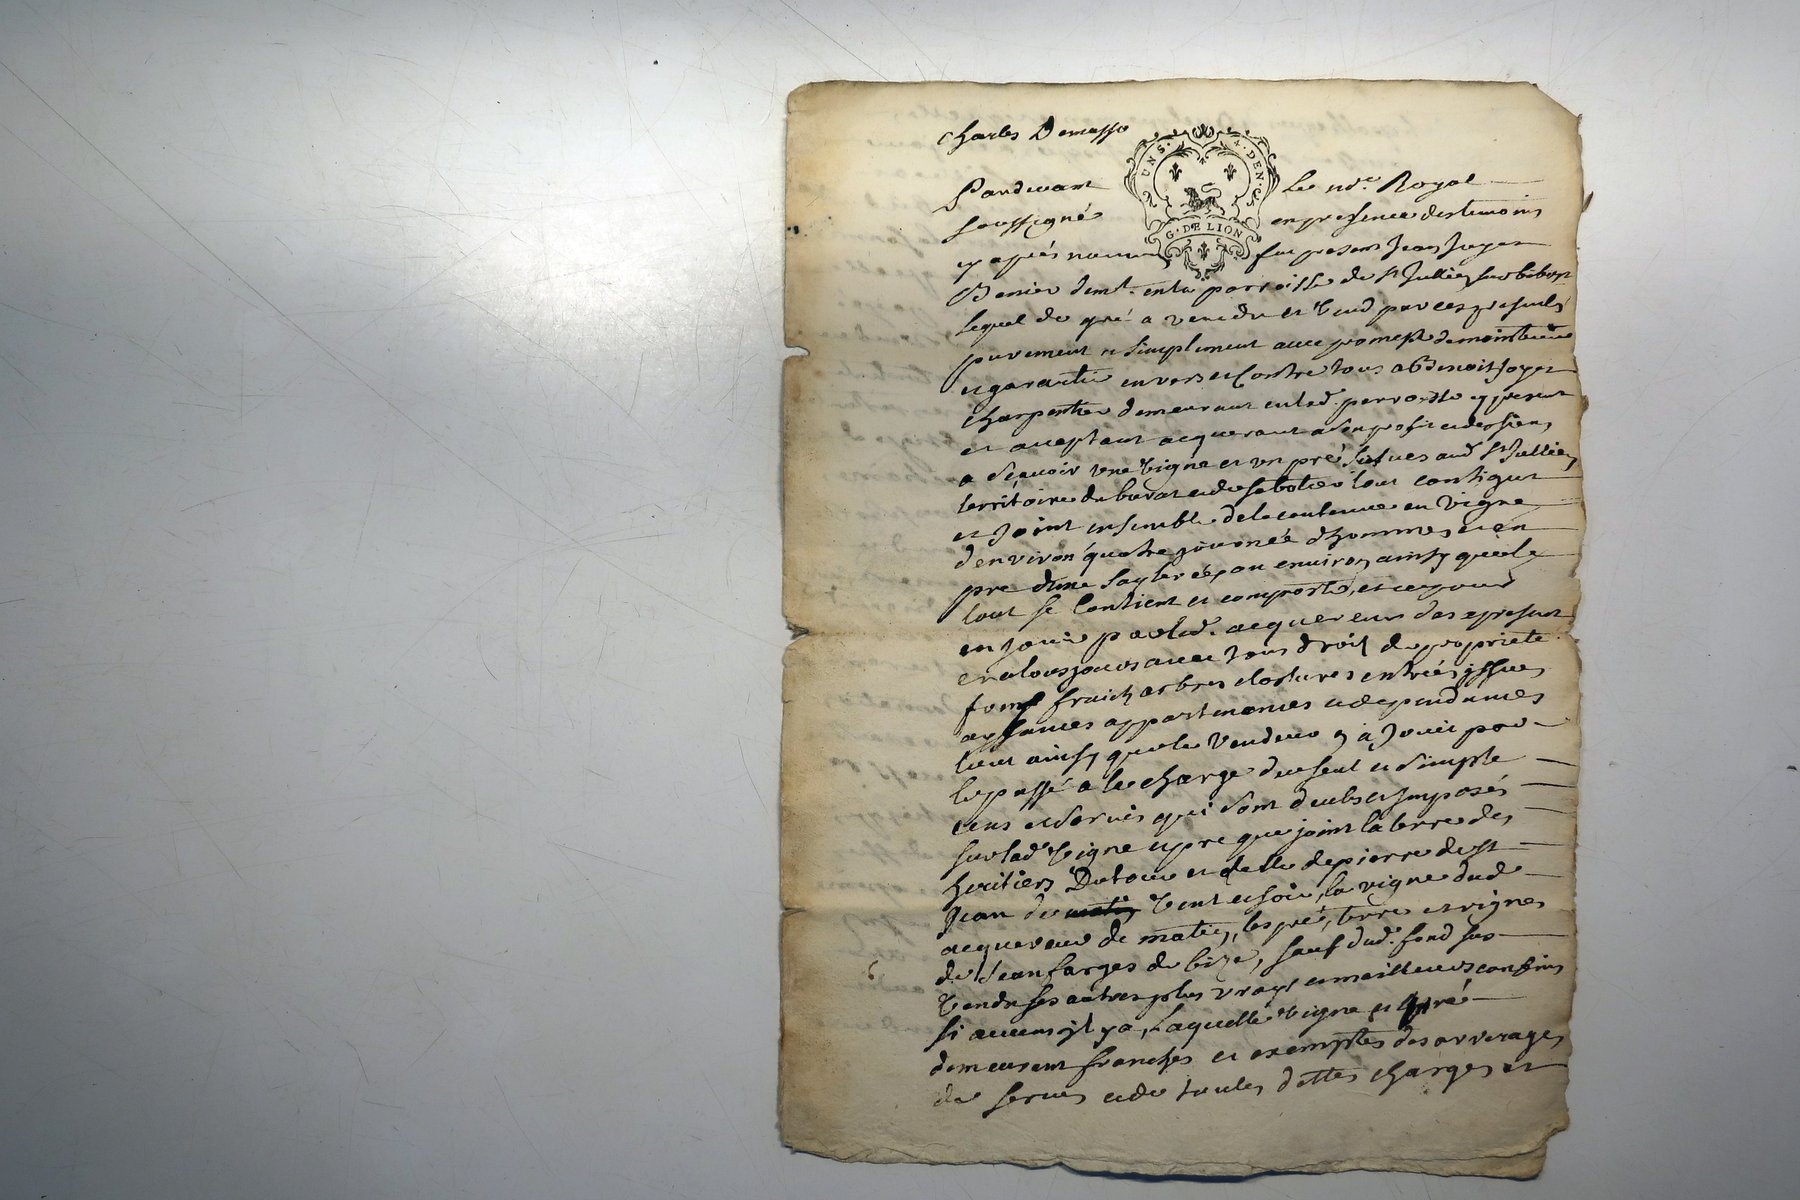 Charles Demasso
UN S. 4. DEN.
G. DE LION
Pardevant Le no.re Royal
soussigné en presence des temoins
cy aprés nommés fut present Jean Joyer
demt. en la parroisse de St Jullien sur bibost
lequel de gré a vendu et vend par ces presentes
purement et simplement avec promesse de maintenir
et garantir envers et Contre tous a Benoit Joyer
charpentier demeurant en lad. parroisse cy present
et acceptant acquerant a son profit et des siens
a scavoir une vigne et un pré situes aud. St Jullien
territoire du et du tout contigus
et Joint ensemble de la contenue en vigne
d'environ quatre journée d'hommes et en
pré d'une ou environ ainsy que le
tout se Contient et comporte, et ce pour
en jouir par led. acquereur des a present
et a tousjours avec tous droits de proprieté
fonds fruits arbres clostures entrées issues
aysances appartenances et dependances
tout ainsy que le vendeur en a Joui par
le passé a la charge du seul et simple
cens et servis qui sont deubs et Imposés
sur lad. vigne et pré que joint la terre des
heritiers Dutour et celle de pierre de St
Jean de vent et soir, la vigne dud.
acquereur de matin, les pré, terres et vignes
de Jean farges de bize, sauf dud. fond sus
vendu ses autres plus vrays et meilleurs confins
si aucuns jl y a, Laquelle vigne et pré
demeurent franches et exemptes des arrerages
de servis et de toutes dettes charges et